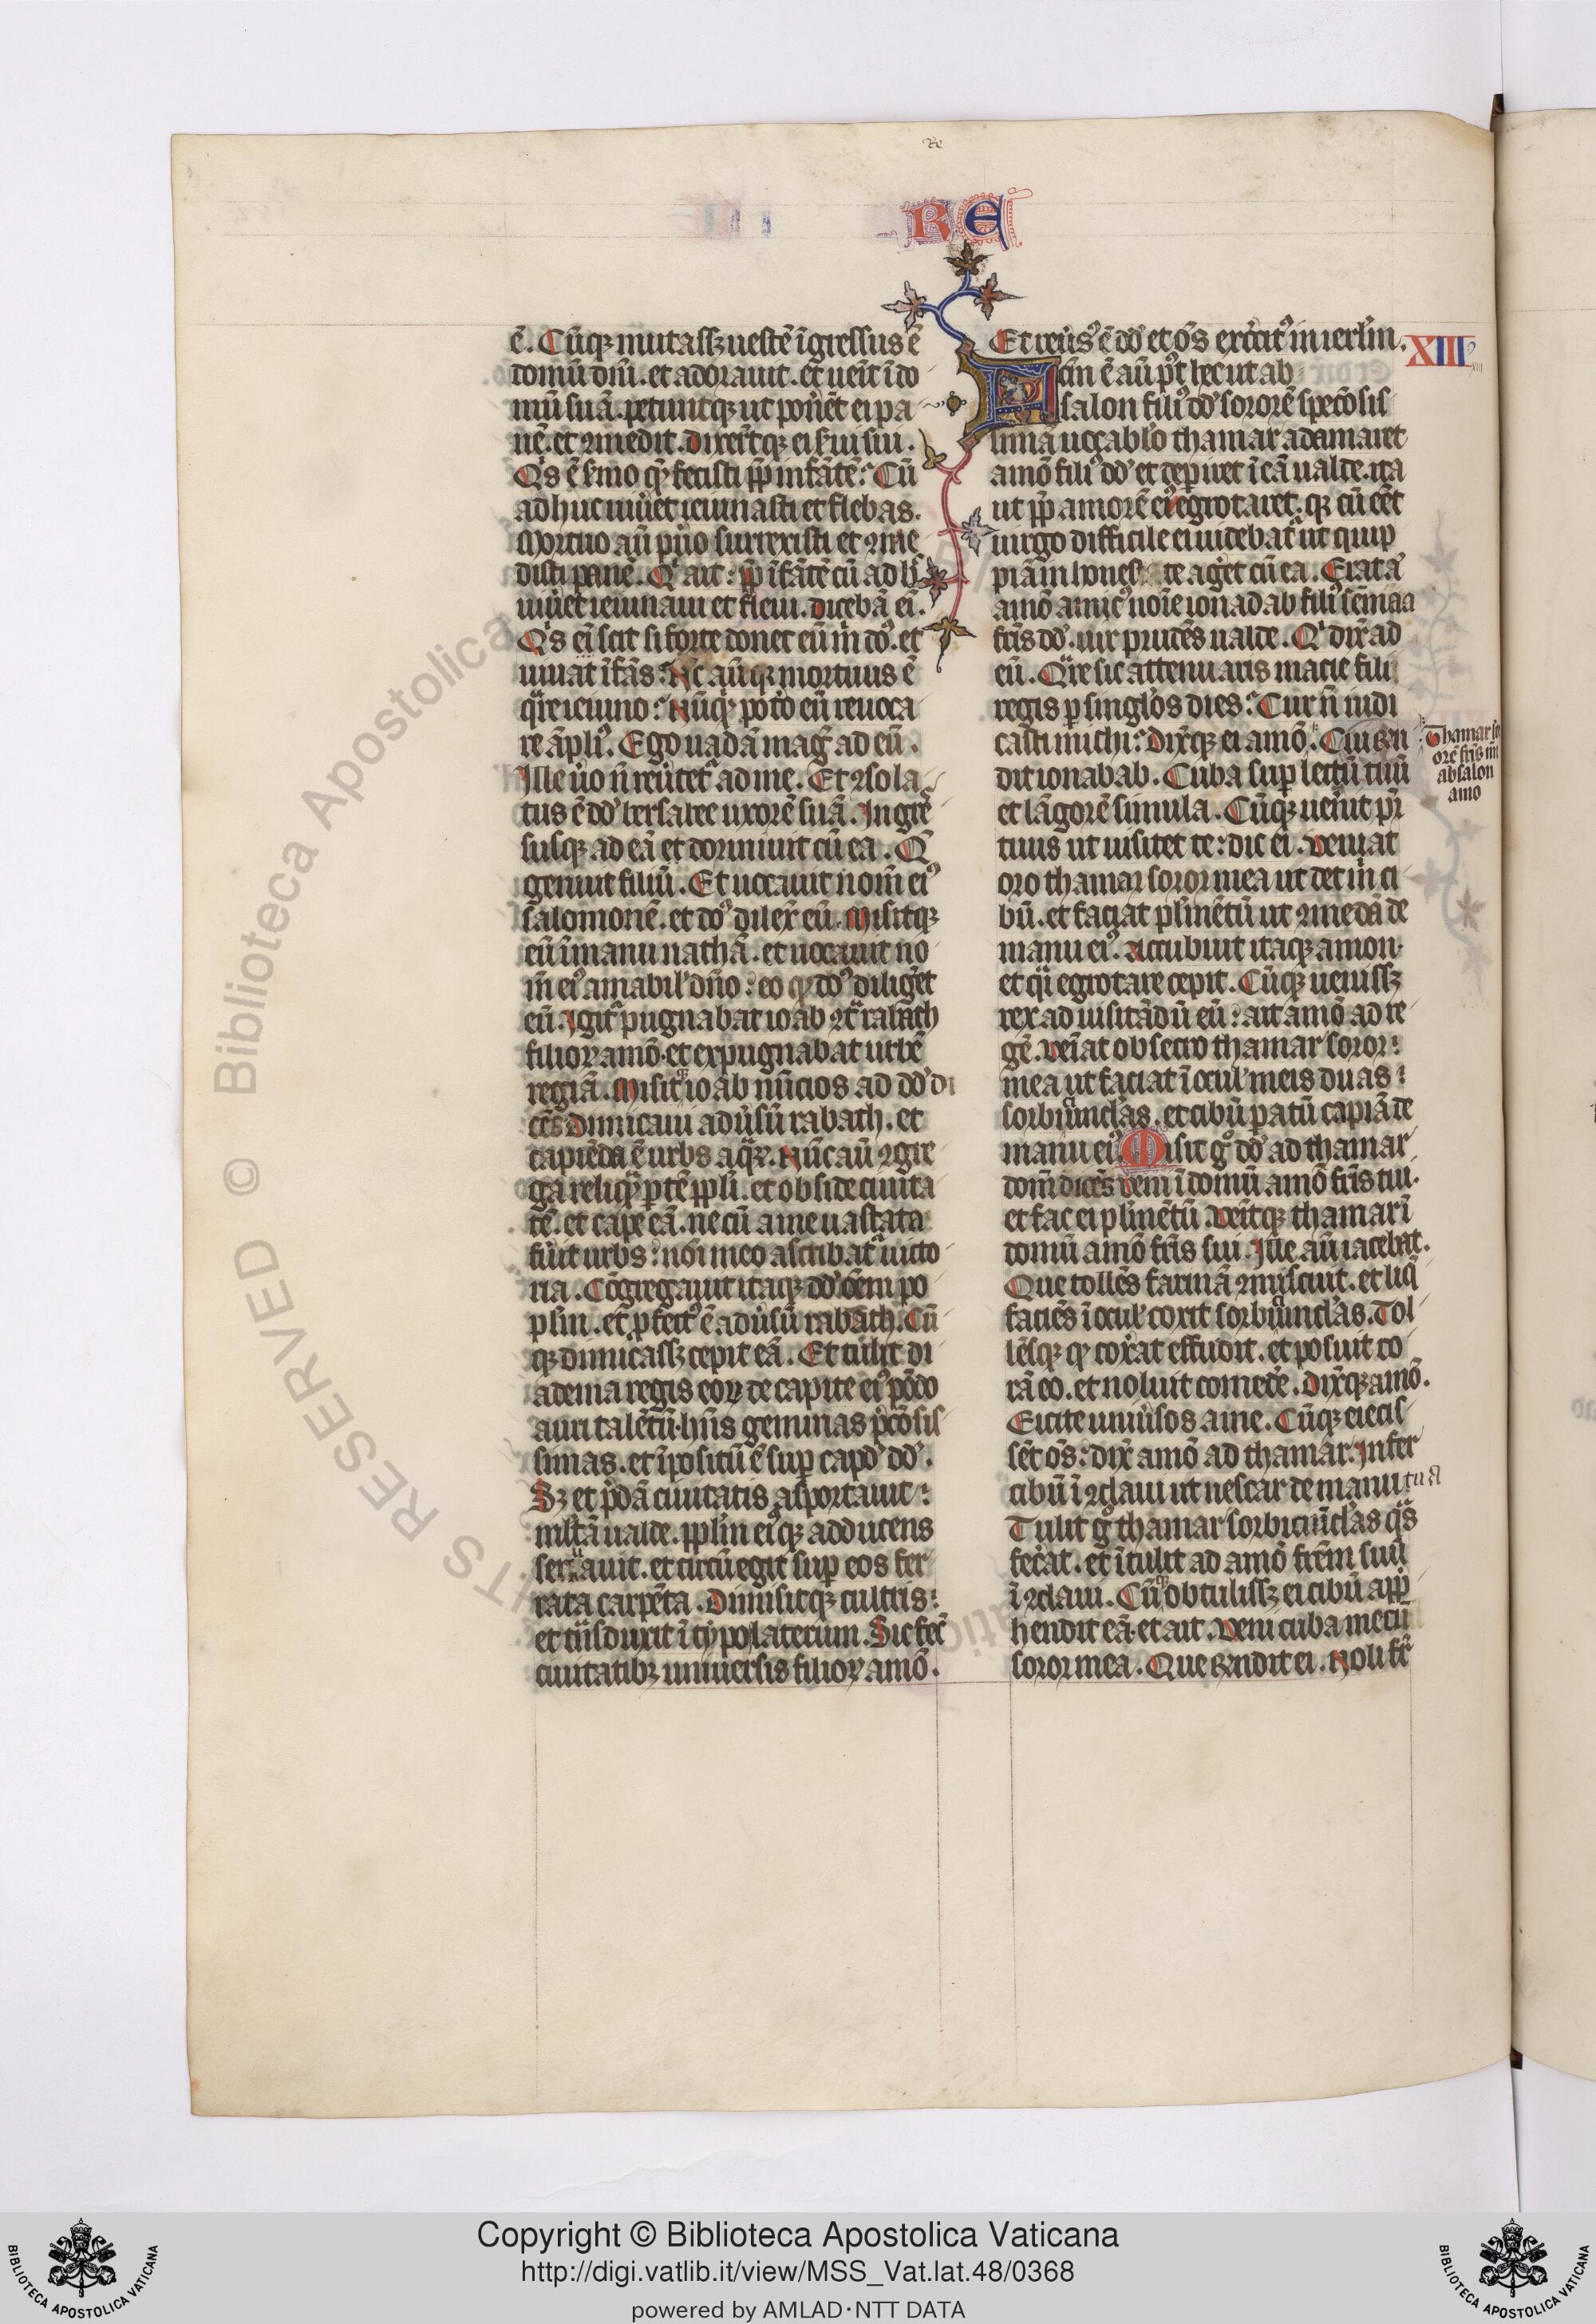 RE
ē. Cūqꝫ mutassꝫ uestē īgressus ē
domū dn̄i. et adorauit. et uēit ī do
mū suā. petiuitqꝫ ut pon̄et ei pa
nē. et ꝯmedit. dixer̄tqꝫ ei s̄ui sui.
Qis ē s̄mo qͥ fecisti ꝓp̄ infātē? Cū
adhuc uiu̅et ieiunasti et flebas.
Mortuo aū pu̅o surrexisti et ꝯme
disti panē. Qͥ ait: ꝓp̄ īfātē cū adhͨ
uiu̅et ieiunaui et fleui. dicebā ei.
Qͥs ei scit si forte donet eū m̄ dō. et
uiuat īfās? Nc̄ aū qꝫ mortuus ē
qͣre ieiuno? Nūqͥ pot̄o eū reuoca
re āpliꝰ. Ego uadā magꝭ ad eū.
Ille u̅o n̄ reu̅tet᷑ ad me. Et ꝯsola
tus ē dd̄ bersabee uxorē suā. Ingre
susqꝫ ad eā et dormiuit cū ea. Q̄
genuit filiū. Et uocauit nom̄ eiꝰ
salomonē. et doꝰ dilex̄ eū. Misitqꝫ
eū ī manu nathā. et uocauit no
m̄ eiꝰ amabil̓ dn̄o: eo qͥ doꝰ diliget
eū. Igit᷑ pugnabat ioab ꝯͭra rabath
filioꝝ amō. et expugnabat urbē
regiā. Misitqꝫ ioab nūcios ad dd̄ di
cēs. Dimicaui adu̅sū rabath. et
capiēda ē urbs aqͣꝝ. Nūc aū ꝯgre
ga reliqͣ ꝑtē ppl̄i. et obside ciuita
tē. et cape eā. ne cū a me uastata
fūit urbs: noī meo ascribat᷑ uicto
ria. Cōgregauit itaqꝫ dd̄ ōem po
pl̄m. et ꝓfectꝰ ē adu̅sū rabath. Cū
qꝫ dimicassꝫ cepit eā. Et tulit di
adema regis eoꝝ de capite eiꝰ pōdo
auri talētū. hn̄s gemmas p̄ciosis
simas. et īpositū ē suꝑ capd̓ dd̄.
Sꝫ et p̄dā ciuitatis asportauit:
ml̄tā ualde. ppl̄m eiꝰqꝫ adducens
serrauit. et circūegit suꝑ eos fer
rata carpēta. Diuisitqꝫ cultris:
et t̄ᵃduxit ī typo laterum. Sic fec̄
ciuitatibꝫ uniuersis filioꝝ amō.
Et reu̅sꝰ ē dd̄ et ōs exc̄itꝰ in ierl̄m.
XIII
Fcm̄ ē aū pꝰt hec ut ab
salon filiꝰ dd̄ sororē speciosis
simā uocabl̓o thamar adamaret
amō filiꝰ dd̄ et depiret ī eā ualde. ita
ut ꝓp̄ amorē eiꝰ egrotaret. qꝫ cū eēt
uirgo difficile ei uidebat᷑ ut quip
piā inhoneste aget cū ea. Erat ā
amō amicꝰ noīe ionadab filiꝰ semaa
fr̄is dd̄. uir prudēs ualde. Qͥ dix̄ ad
eū. Qͣre sic attenuaris macie fili
regis ꝑ singlo̓s dies? Cur n̄ indi
casti michi? Dix̄qꝫ ei amō. Cui rn̄
dit ionabab. Cuba suꝑ lectū tuū
et lāgorē simula. Cūqꝫ uen̄it pr̄
tuus ut uisitet te: dic ei. Veniat
oro thamar soror mea ut det m̄ ci
bū. et faciat pl̄mētū ut ꝯmedā de
manu eiꝰ. Accubuit itaqꝫ amon.
et qͣi egrotare cepit. Cūqꝫ uenissꝫ
rex ad uisitādū eū: ait amō ad re
gē. Veīat obsecro thamar soror:
mea ut faciat ī ocul̓ meis duas:
sorbiūncl̓as. et cibū patū capiā de
manu eiꝰ. Misit gͦ dd̄ ad thamar
domū dicēs. Veni ī domū amō fr̄is tui.
et fac ei pl̄mētū. Veītqꝫ thamar ī
domū amō fr̄is sui. Ip̄e aū iacebat.
Que tollēs farinā ꝯmiscuit. et liq̄
faciēs ī ocul̓ coxit sorbiūncl̓as. Tol
lēsqꝫ qͥ cox̄at effudit. et posuit co
rā eo. et noluit comede̅. Dix̄qꝫ amō.
Eicite uniu̅sos a me. Cūqꝫ eiecis
sēt ōs: dix̄ amō ad thamar. Infer
cibū ī ꝯclaui ut uescar de manu tua
Tulit gͦ thamar sorbiciūcl̓as qͣs
fec̄at. et ītulit ad amō fr̄em suū
ī ꝯclaui. Cūqꝫ obtulissꝫ ei cibū app̄
hendit eā. et ait. Veni cuba mecū
soror mea. Que rn̄dit ei. Noli fr̄
Thamar so
orē fr̄is mi
absalon
amo
Copyright © Biblioteca Apostolica Vaticana
http://digi.vatlib.it/view/MSS_Vat.lat.48/0368
powered by AMLAD·NTT DATA
BIBLIOTECA APOSTOLICA VATICANA
BIBLIOTECA APOSTOLICA VATICANA